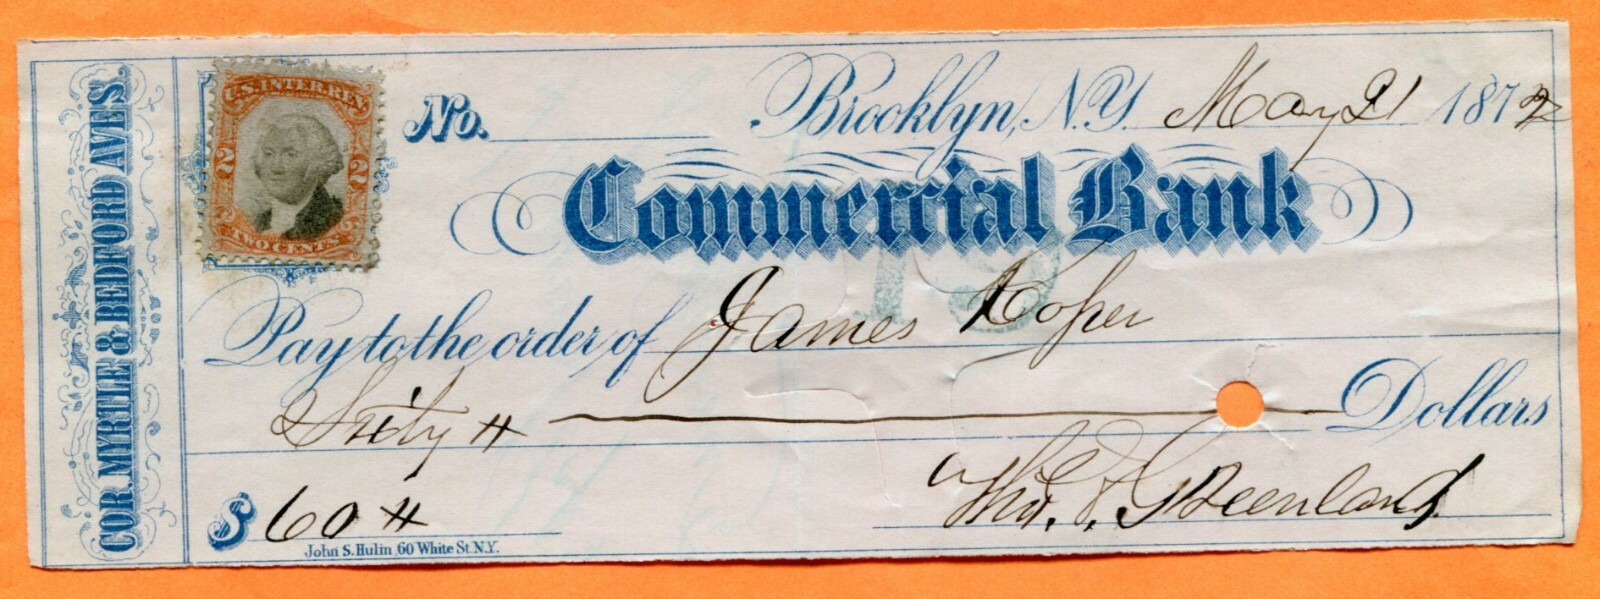 COR. MYRTLE & BEDFORD AVES.
U.S. INTER. REV.
2 2
TWO CENTS
No. Brooklyn, N.Y. May 21 1872
Commercial Bank
19
Pay to the order of James Roper
Sixty # Dollars
$ 60 #
Thos. Greenland
John S. Hulin, 60 White St. N.Y.